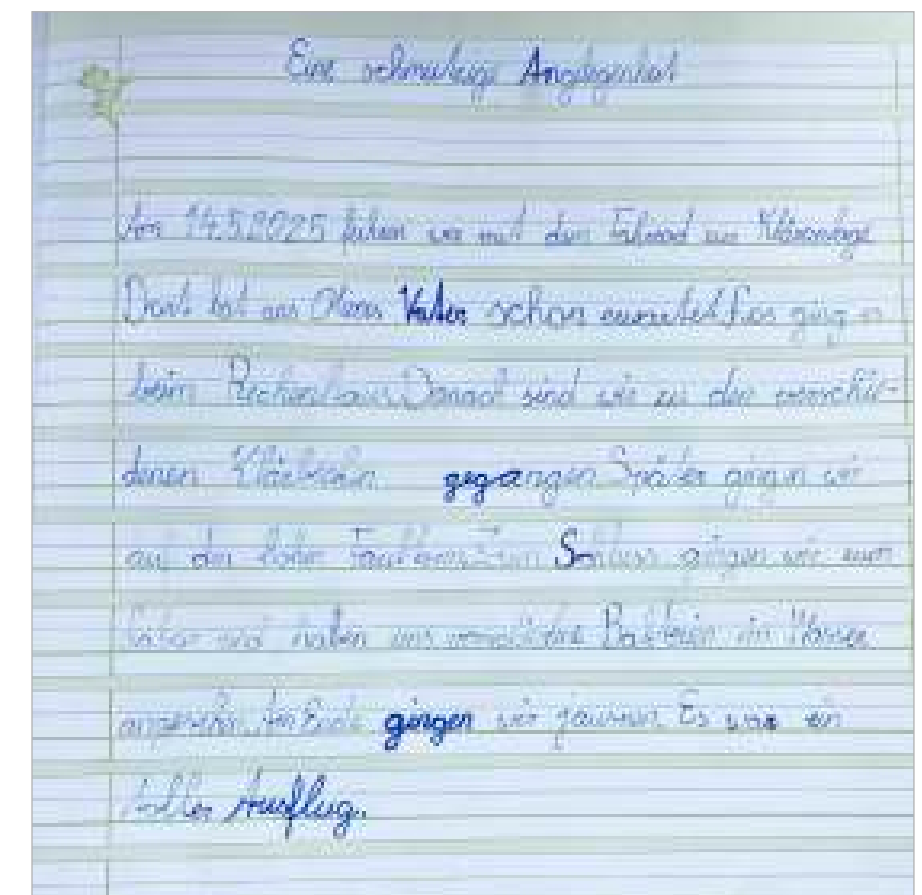 Eine schmutzige Angelegenheit
Am 14.5.2025 fuhren wir mit dem Fahrrad zur Kläranlage
Dort hat uns Vater schon erwartet. Los ging es
beim Rechenhaus. Danach sind wir zu den verschie-
denen Klärbecken gegangen. Später gingen wir
auf den hohen Faulturm. Zum Schluss gingen wir zum
Labor und haben uns verschiedene Bakterien im Wasser
angesehen. Am Ende gingen wir jausnen. Es war ein
toller Ausflug.